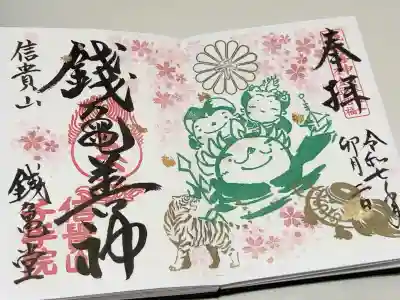 奉拝
令和七年
卯月二日
錢亀善神
信貴山
銭亀堂